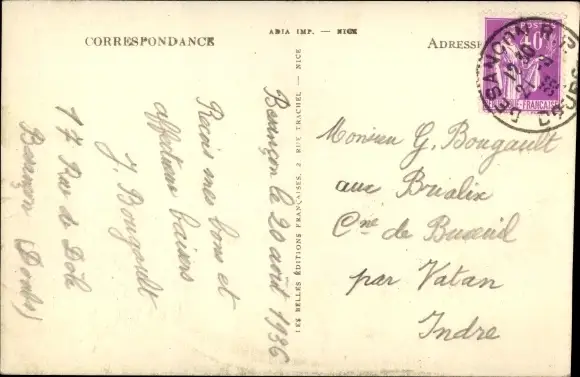 CORRESPONDANCE
ARIA IMP. — NICE
ADRESSE
POSTES
BESANÇON R.P.
DOUBS
Besançon le 20 août 1936
Reçois mes bons et
affectueux baisers
J. Bougault
17 Rue de Dôle
Besançon (Doubs)
LES BELLES ÉDITIONS FRANÇAISES, 2 RUE TRACHEL — NICE
Monsieur G. Bougault
aux Brialix
Cne de Buxeuil
par Vatan
Indre